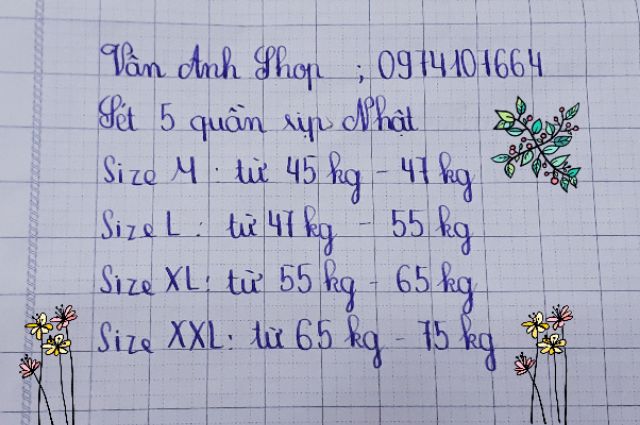 Vân Anh Shop ; 0974107664
Sét 5 quần sịp Nhật
Size M : từ 45 kg - 47 kg
Size L : từ 47 kg - 55 kg
Size XL : từ 55 kg - 65 kg
Size XXL : từ 65 kg - 75 kg